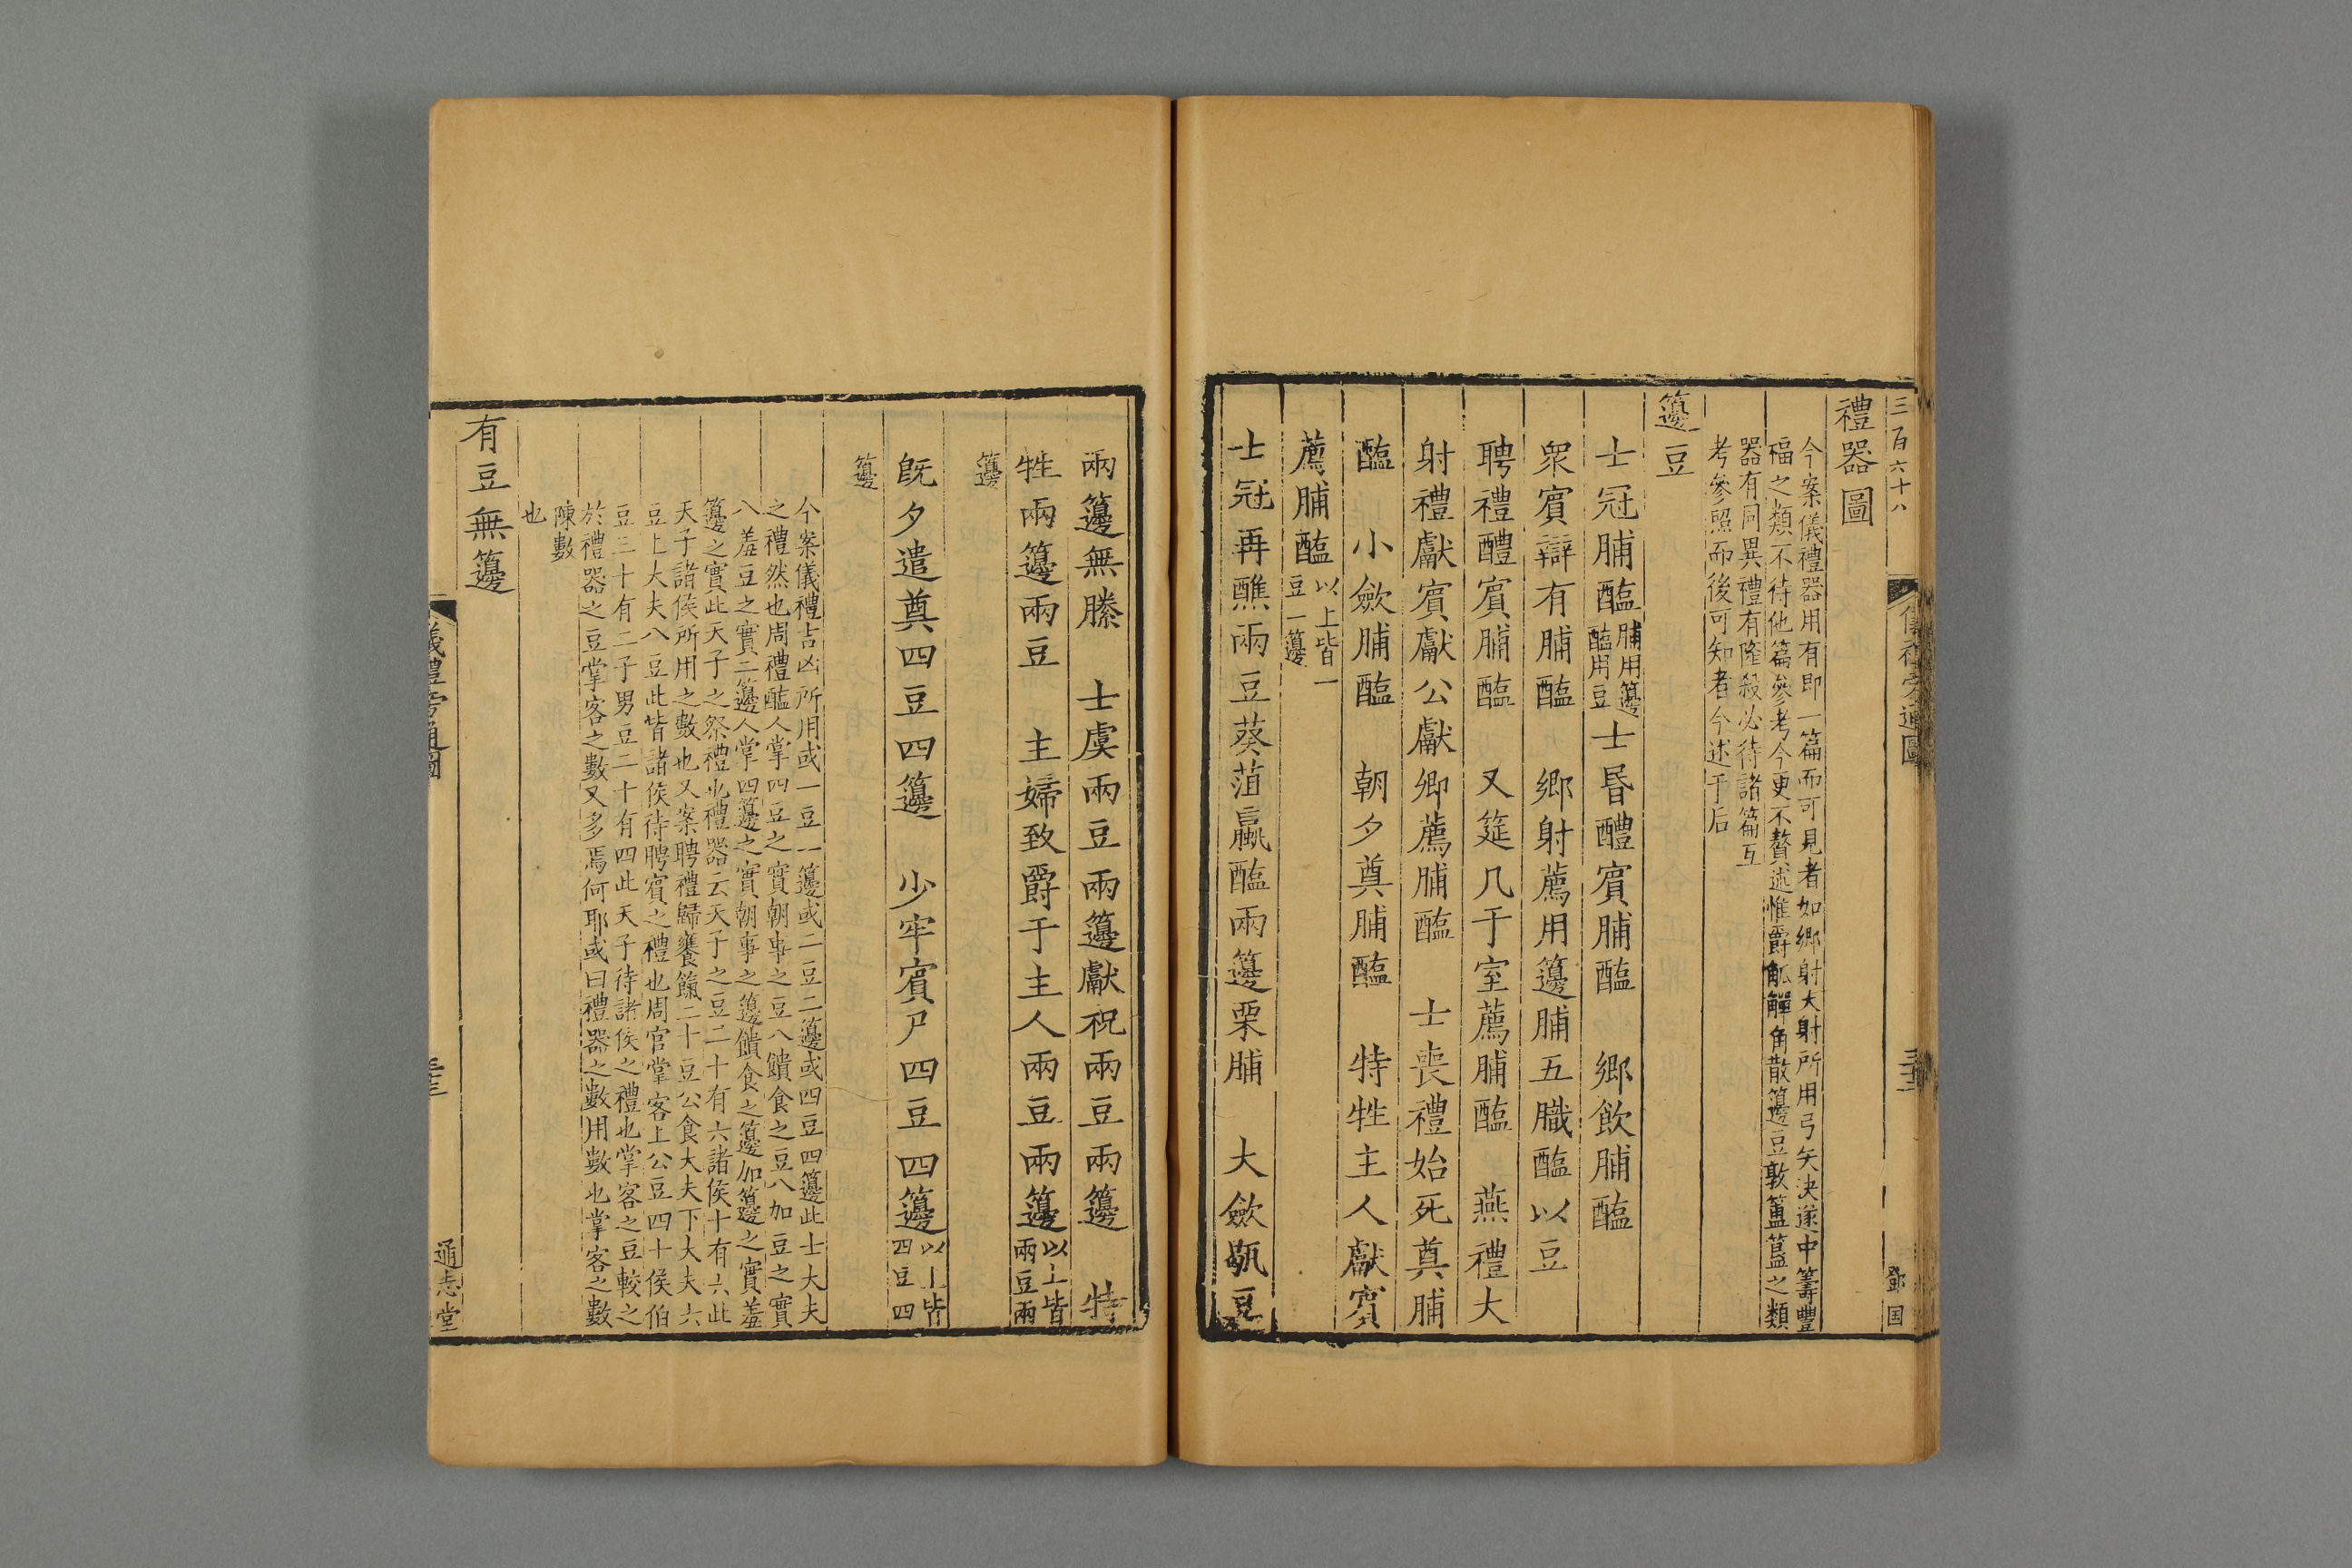 三百六十八
儀禮旁通圖
鄧国
禮器圖
今案儀禮器用有即一篇而可見者如鄉射大射所用弓矢決遂中籌豐
福之類不待他篇參考今更不贅述惟爵觚觶角散籩豆敦簠簋之類
器有同異禮有隆殺必待諸篇互
考參照而後可知者今述于后
籩豆
士冠脯醢脯用籩醢用豆士昏醴賓脯醢 鄉飲脯醢
眾賓辯有脯醢 鄉射薦用籩脯五膱醢以豆
聘禮醴賓脯醢 又筵几于室薦脯醢 燕禮大
射禮獻賓獻公獻卿薦脯醢 士喪禮始死奠脯
醢 小斂脯醢 朝夕奠脯醢 特牲主人獻賓
薦脯醢以上皆一豆一籩
士冠再醮兩豆葵菹蠃醢兩籩栗脯 大斂毼豆
兩籩無縢 士虞兩豆兩籩獻祝兩豆兩籩 特
牲兩籩兩豆 主婦致爵于主人兩豆兩籩以上皆兩豆兩
籩
既夕遣奠四豆四籩 少牢賓尸四豆四籩以上皆四豆四
籩
今案儀禮吉凶所用或一豆一籩或二豆二籩或四豆四籩此士大夫
之禮然也周禮醢人掌四豆之實朝事之豆八饋食之豆八加豆之實
八羞豆之實二籩人掌四籩之實朝事之籩饋食之籩加籩之實羞
籩之實此天子之祭禮也禮器云天子之豆二十有六諸侯十有六此
天子諸侯所用之數也又案聘禮歸饔餼二十豆公食大夫下大夫六
豆上大夫八豆此皆諸侯待聘賓之禮也周官掌客上公豆四十侯伯
豆三十有二子男豆二十有四此天子待諸侯之禮也掌客之豆較之
於禮器之豆掌客之數又多焉何耶或曰禮器之數用數也掌客之數
陳數
也
有豆無籩
儀禮旁通圖
通志堂